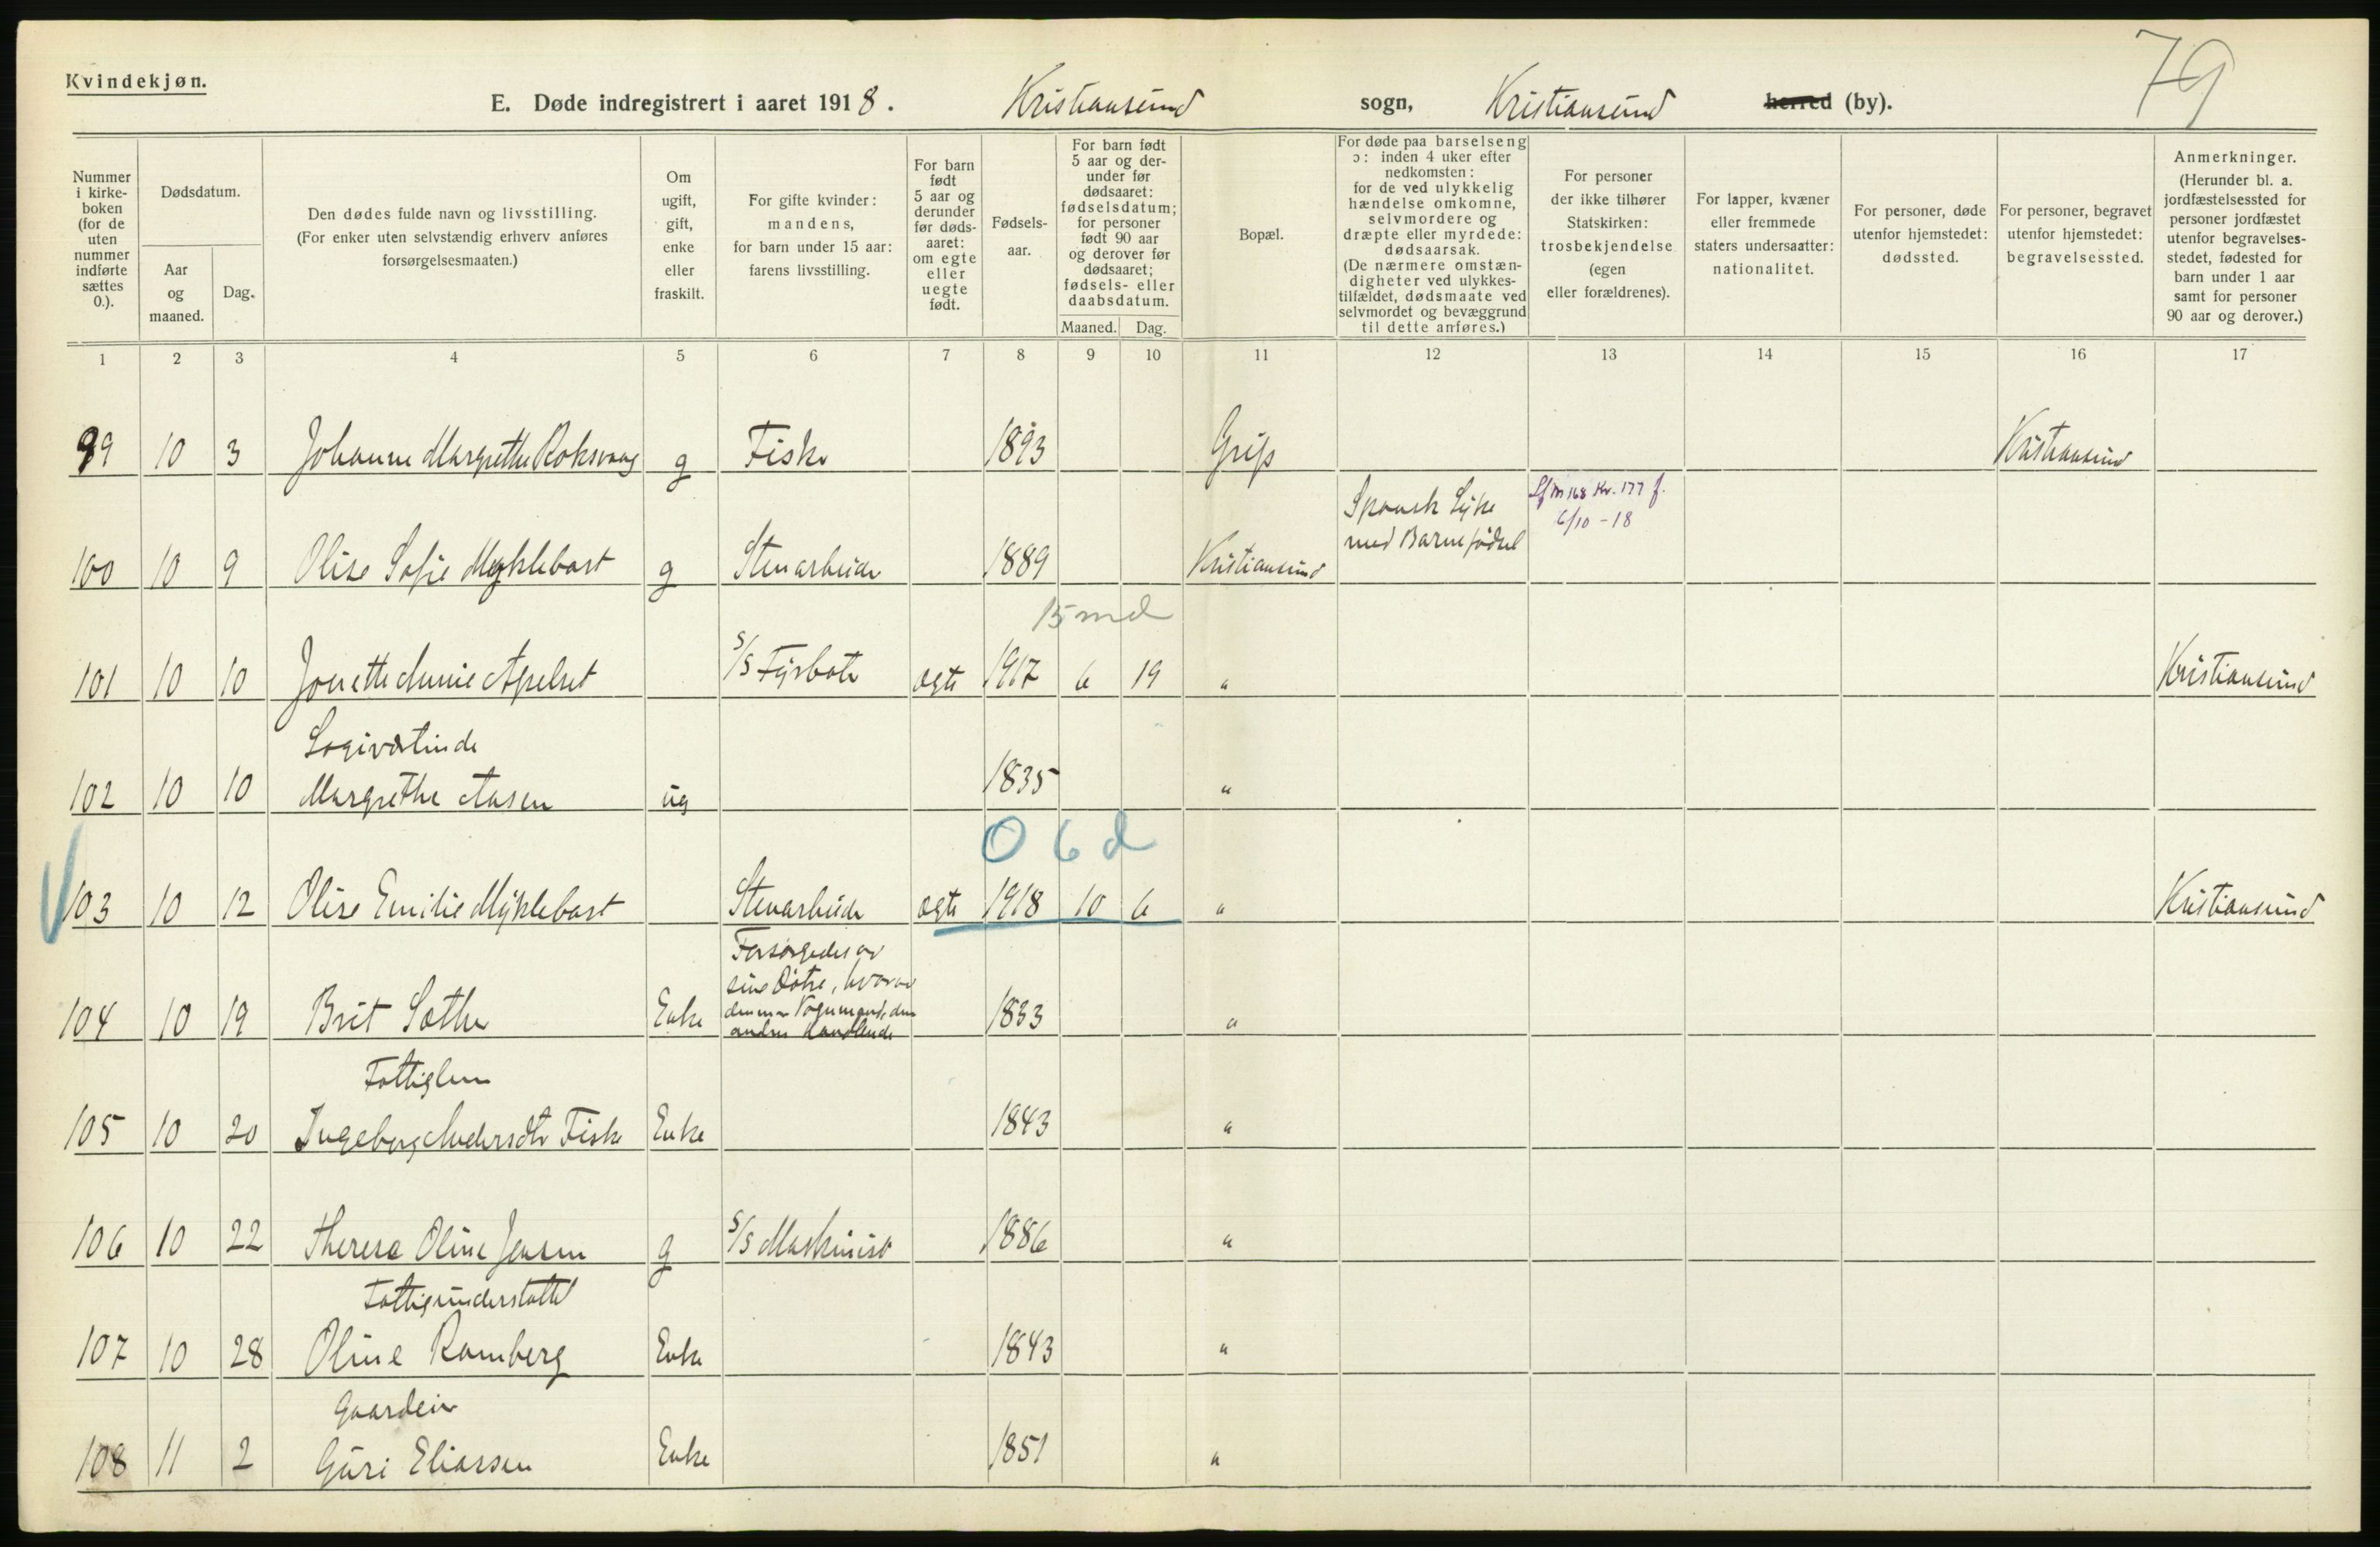 79
Kvindekjøn.
E. Døde indregistrert i aaret 1918. Kristiansund sogn, Kristiansund herred (by).
Nummer i kirkeboken (for de uten nummer indførte sættes 0.).
Dødsdatum.
Aar og maaned.
Dag.
Den dødes fulde navn og livsstilling. (For enker uten selvstændig erhverv anføres forsørgelsesmaaten.)
Om ugift, gift, enke eller fraskilt.
For gifte kvinder: mandens, for barn under 15 aar: farens livsstilling.
For barn født 5 aar og derunder før dødsaaret: om egte eller uegte født.
Fødselsaar.
For barn født 5 aar og derunder før dødsaaret: fødselsdatum; for personer født 90 aar og derover før dødsaaret; fødsels- eller daabsdatum.
Maaned. Dag.
Bopæl.
For døde paa barselseng ɔ: inden 4 uker efter nedkomsten: for de ved ulykkelig hændelse omkomne, selvmordere og dræpte eller myrdede: dødsaarsak. (De nærmere omstændigheter ved ulykkestilfældet, dødsmaate ved selvmordet og bevæggrund til dette anføres.)
For personer der ikke tilhører Statskirken: trosbekjendelse (egen eller forældrenes).
For lapper, kvæner eller fremmede staters undersaatter: nationalitet.
For personer, døde utenfor hjemstedet: dødssted.
For personer, begravet utenfor hjemstedet: begravelsessted.
Anmerkninger. (Herunder bl. a. jordfæstelsessted for personer jordfæstet utenfor begravelsesstedet, fødested for barn under 1 aar samt for personer 90 aar og derover.)
1 2 3 4 5 6 7 8 9 10 11 12 13 14 15 16 17
99 10 3 Johanne Margrethe Roksvaag g Fisker 1893 Grip Kristiansund
Spansk Syke
med Barnefødsel
6/10-18
100 10 9 Olise Sofie Myklebost g Stenarbeider 1889 Kristiansund
15 md
101 10 10 Jonette Annie Apelset S/S Fyrbøter ægte 1917 6 19 " Kristiansund
Logivertinde
102 10 10 Margrethe Aasen ug 1835 "
0 6 d
103 10 12 Olise Emilie Myklebost Stenarbeider ægte 1918 10 6 " Kristiansund
Forsørgedes av
sine Døtre, hvorav
den ene Vognmand, den
anden handlende
104 10 19 Brit Sæther Enke 1833 "
Fattiglem
105 10 20 Ingeborg Andersdtr Fisker Enke 1843 "
106 10 22 Therese Oline Jensen g S/S Maskinist 1886 "
Fattigunderstøttet
107 10 28 Oline Ramberg Enke 1843 "
Gaardeier
108 11 2 Guri Eliassen Enke 1851 "